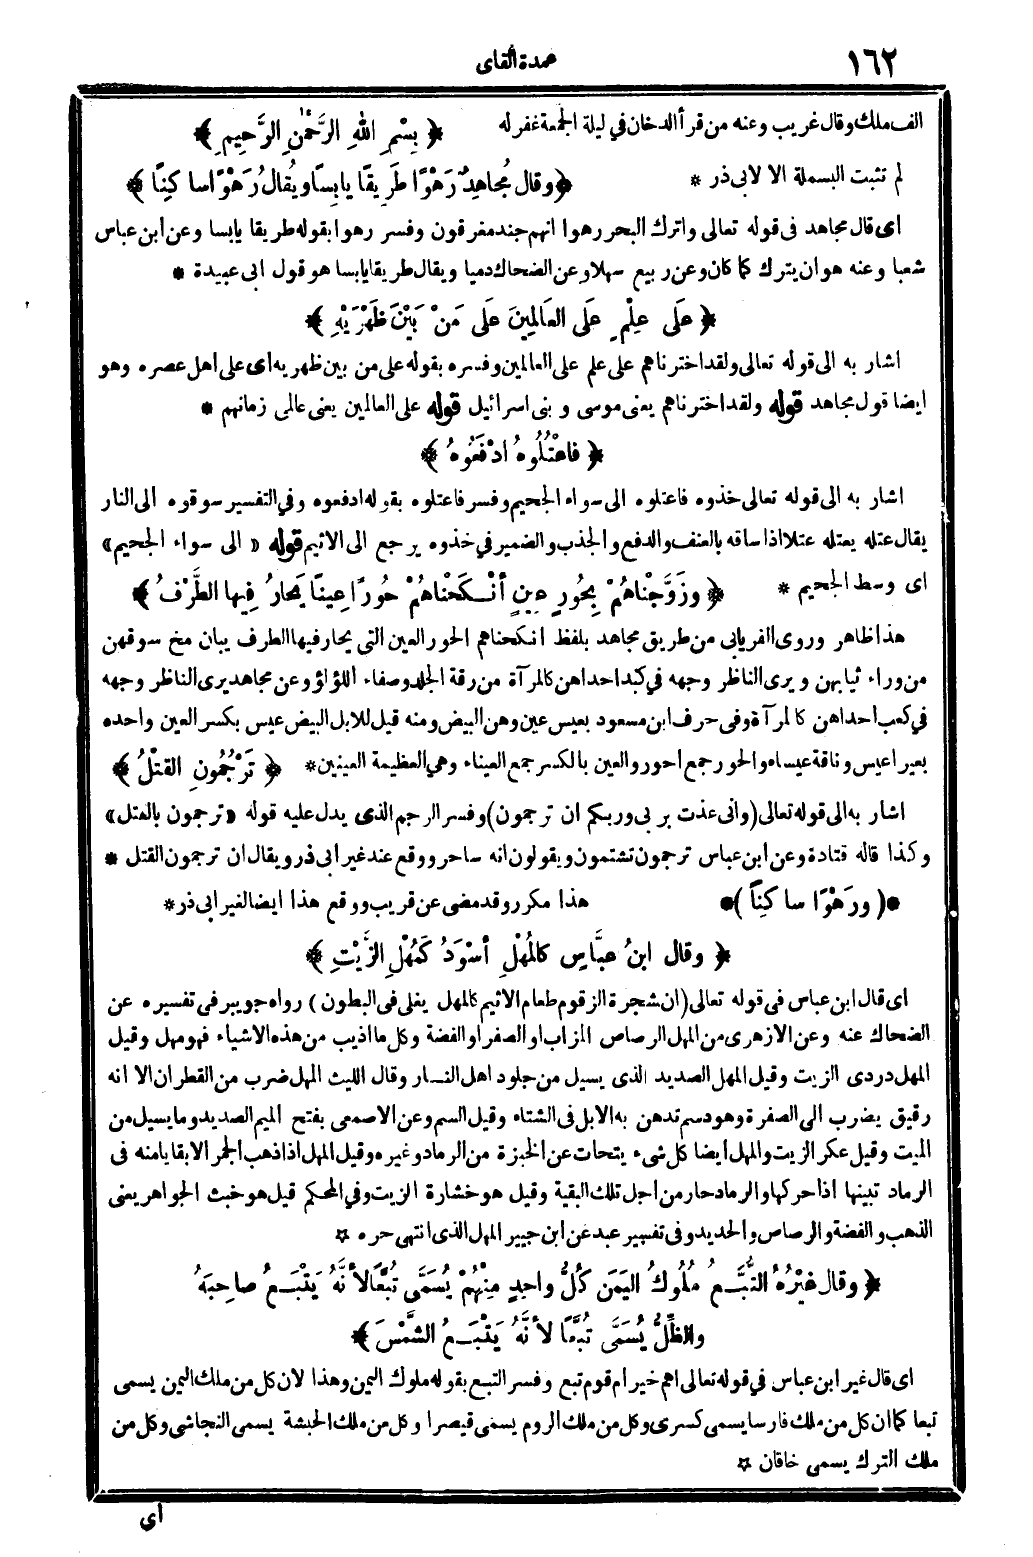 ١٦٢
عمدة القاى
الف ملك وقال غريب وعنه من قرأ الدخان في ليلة الجمعة غفر له ﴿ بِسْمِ اللهِ الرَّحْمٰنِ الرَّحِيمِ ﴾
لم تثبت البسملة الا لابى ذر * ﴿ وقال مُجاهِدٌ رَهْوًا طَرِيقًا يابِسًا ويُقالُ رَهْوًا ساكِنًا ﴾
اى قال مجاهد فى قوله تعالى واترك البحر رهوا انهم جند مغرقون وفسر رهوا بقوله طريقا يابسا وعن ابن عباس
شعبا وعنه هو ان يترك كما كان وعن ربيع سهلا وعن الضحاك دميا ويقال طريقا يابسا هو قول ابى عبيدة *
﴿ عَلَى عِلْمٍ عَلَى العَالَمِينَ عَلَى مَنْ بَيْنَ ظَهْرَيْهِ ﴾
اشار به الى قوله تعالى ولقد اخترناهم على علم على العالمين وفسره بقوله على من بين ظهريه اى على اهل عصره وهو
ايضا قول مجاهد قوله ولقد اخترناهم يعنى موسى و بنى اسرائيل قوله على العالمين يعنى عالمى زمانهم *
﴿ فاعْتُلُوهُ ادْفَعُوهُ ﴾
اشار به الى قوله تعالى خذوه فاعتلوه الى سواء الجحيم وفسر فاعتلوه بقوله ادفعوه وفي التفسير سوقوه الى النار
يقال عتله يعتله عتلا اذا ساقه بالعنف والدفع و الجذب والضمير في خذوه يرجع الى الاثيم قوله « الى سواء الجحيم»
اى وسط الجحيم * ﴿ وزَوَّجْناهُمْ بِحُورٍ عِينٍ أنْكَحْناهُمْ حُورًا عِينًا يَحارُ فِيها الطَّرْفُ ﴾
هذا ظاهر وروى الفريابى من طريق مجاهد بلفظ انكحناهم الحور العين التى يحار فيها الطرف يبان مخ سوقهن
من وراء ثيابهن ويرى الناظر وجهه في كبد احداهن كالمرآة من رقة الجلد وصفاء اللؤلؤ وعن مجاهد يرى الناظر وجهه
في كعب احداهن كالمرآة وفى حرف ابن مسعود بعيس عين وهن البيض ومنه قيل للابل البيض عيس بكسر العين واحده
بعير اعيس وناقة عيساء والحور جمع احور والعين بالكسر جمع العيناء وهي العظيمة العينين* ﴿ تَرْجُمُونِ القَتْلُ ﴾
اشار به الى قوله تعالى (وانى عذت بربى وربكم ان ترجمون) وفسر الرجم الذى يدل عليه قوله «ترجمون بالقتل»
وكذا قاله قتادة وعن ابن عباس ترجمون تشتمون ويقولون انه ساحر ووقع عند غير ابى ذر ويقال ان ترجمون القتل *
*( ورَهْوًا ساكِنًا )* هذا مكرر وقد مضى عن قريب ووقع هذا ايضا لغير ابى ذر*
﴿ وقال ابنُ عبَّاسٍ كالمُهْلِ أسْوَدُ كَمُهْلِ الزَّيْتِ ﴾
اى قال ابن عباس فى قوله تعالى (ان شجرة الزقوم طعام الاثيم كالمهل يغلى فى البطون) رواه جويبر فى تفسيره عن
الضحاك عنه وعن الازهرى من المهل الرصاص المذاب او الصفر او الفضة وكل ما اذيب من هذه الاشياء فهو مهل وقيل
المهل دردى الزيت وقيل المهل الصديد الذى يسيل من جلود اهل النسار وقال الليث المهل ضرب من القطران الا انه
رقيق يضرب الى الصفرة وهو دسم تدهن به الابل فى الشتاء وقيل السم وعن الاصمعى بفتح الميم الصديد وما يسيل من
الميت وقيل عكر الزيت والمهل ايضا كل شىء يتحات عن الخبزة من الرماد وغيره وقيل المهل اذا ذهب الجمر الا بقايا منه فى
الرماد تبينها اذا حركها والرماد حار من اجل تلك البقية وقيل هو خشارة الزيت وفي المحكم قيل هو خبث الجواهر يعنى
الذهب والفضة والرصاص والحديد وفى تفسير عبد عن ابن جبير المهل الذى انتهى حره *
﴿ وقال غيْرُهُ التُّبَّعُ مُلُوكُ اليَمَنِ كُلُّ واحِدٍ مِنْهُمْ يُسَمَّى تُبَّعًا لأنَّهُ يَتْبَعُ صاحِبَهُ
والظِّلُّ يُسَمَّى تُبَّعًا لأنَّهُ يَتْبَعُ الشَّمْسَ ﴾
اى قال غير ابن عباس في قوله تعالى اهم خير ام قوم تبع وفسر التبع بقوله ملوك اليمن وهذا لان كل من ملك اليمن يسمى
تبعا كما ان كل من ملك فارسا يسمى كسرى وكل من ملك الروم يسمى قيصرا وكل من ملك الحبشة يسمى النجاشى وكل من
ملك الترك يسمى خاقان *
اى